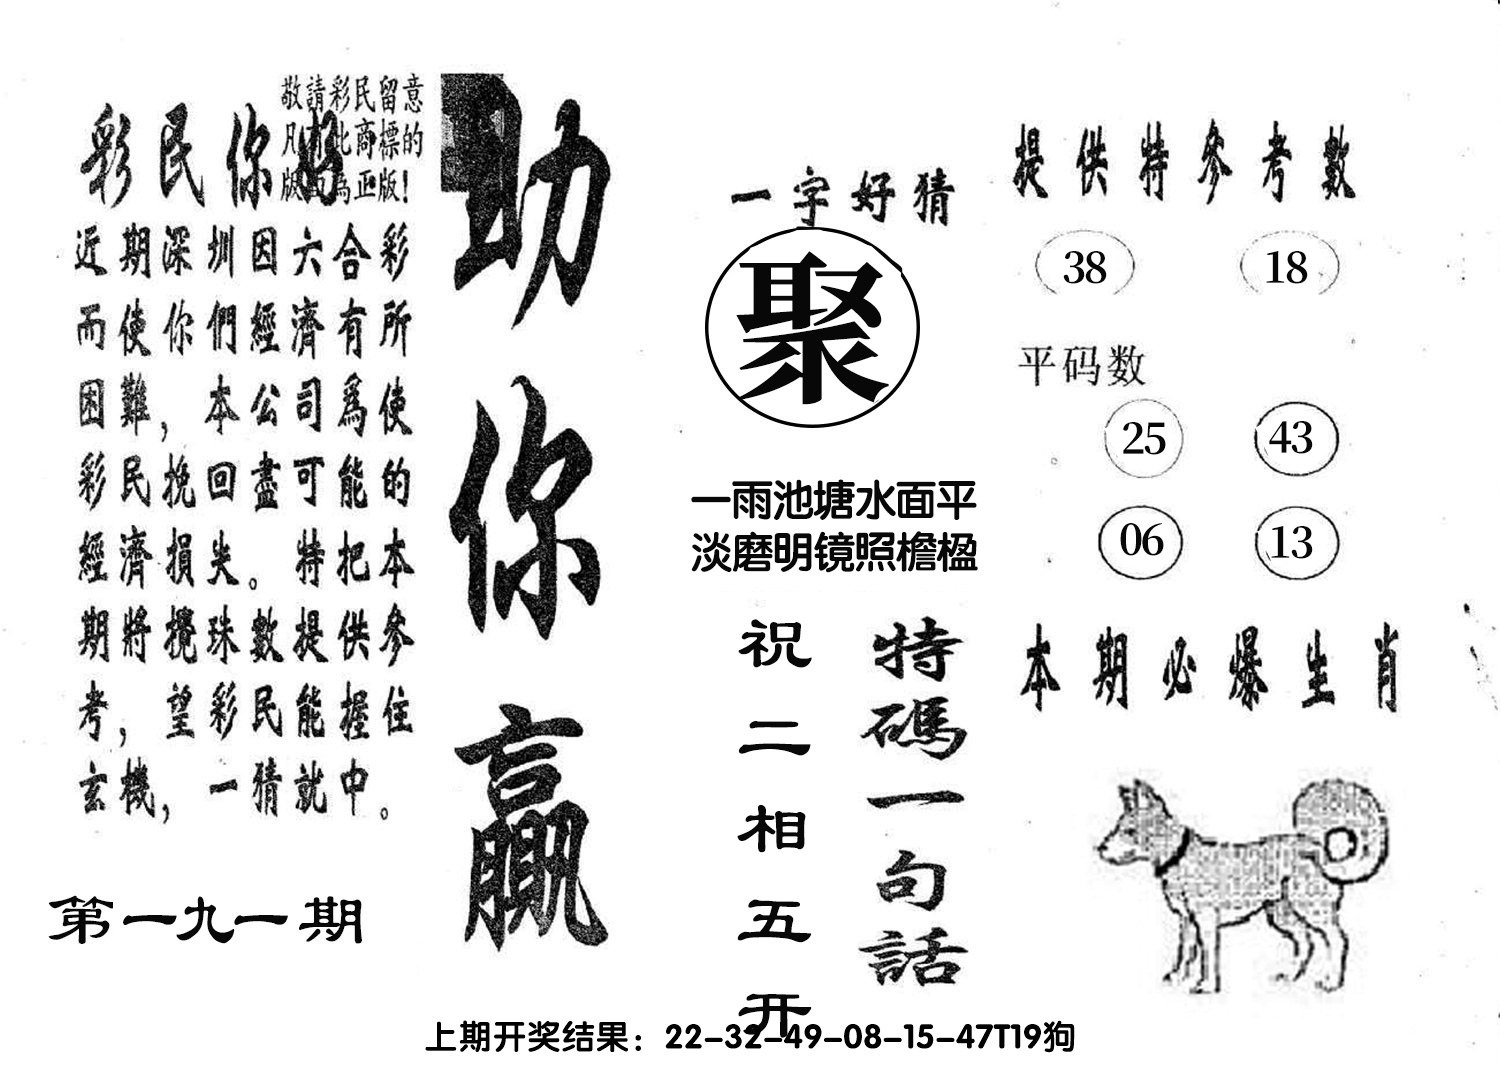 敬請彩民留意
凡有此商標的
版面為正版!
彩民你好
近期深圳因六合彩
而使你們經濟有所
困難，本公司爲使
彩民挽回盡可能的
經濟損失。特把本
期將攪珠數提供參
考，望彩民能握住
玄機，一猜就中。
第一九一期
助你贏
一字好猜
聚
一雨池塘水面平
淡磨明镜照檐楹
特碼一句話
祝二相五开
提供特参考數
38 18
平码数
25 43
06 13
本期必爆生肖
上期开奖结果：22-32-49-08-15-47T19狗